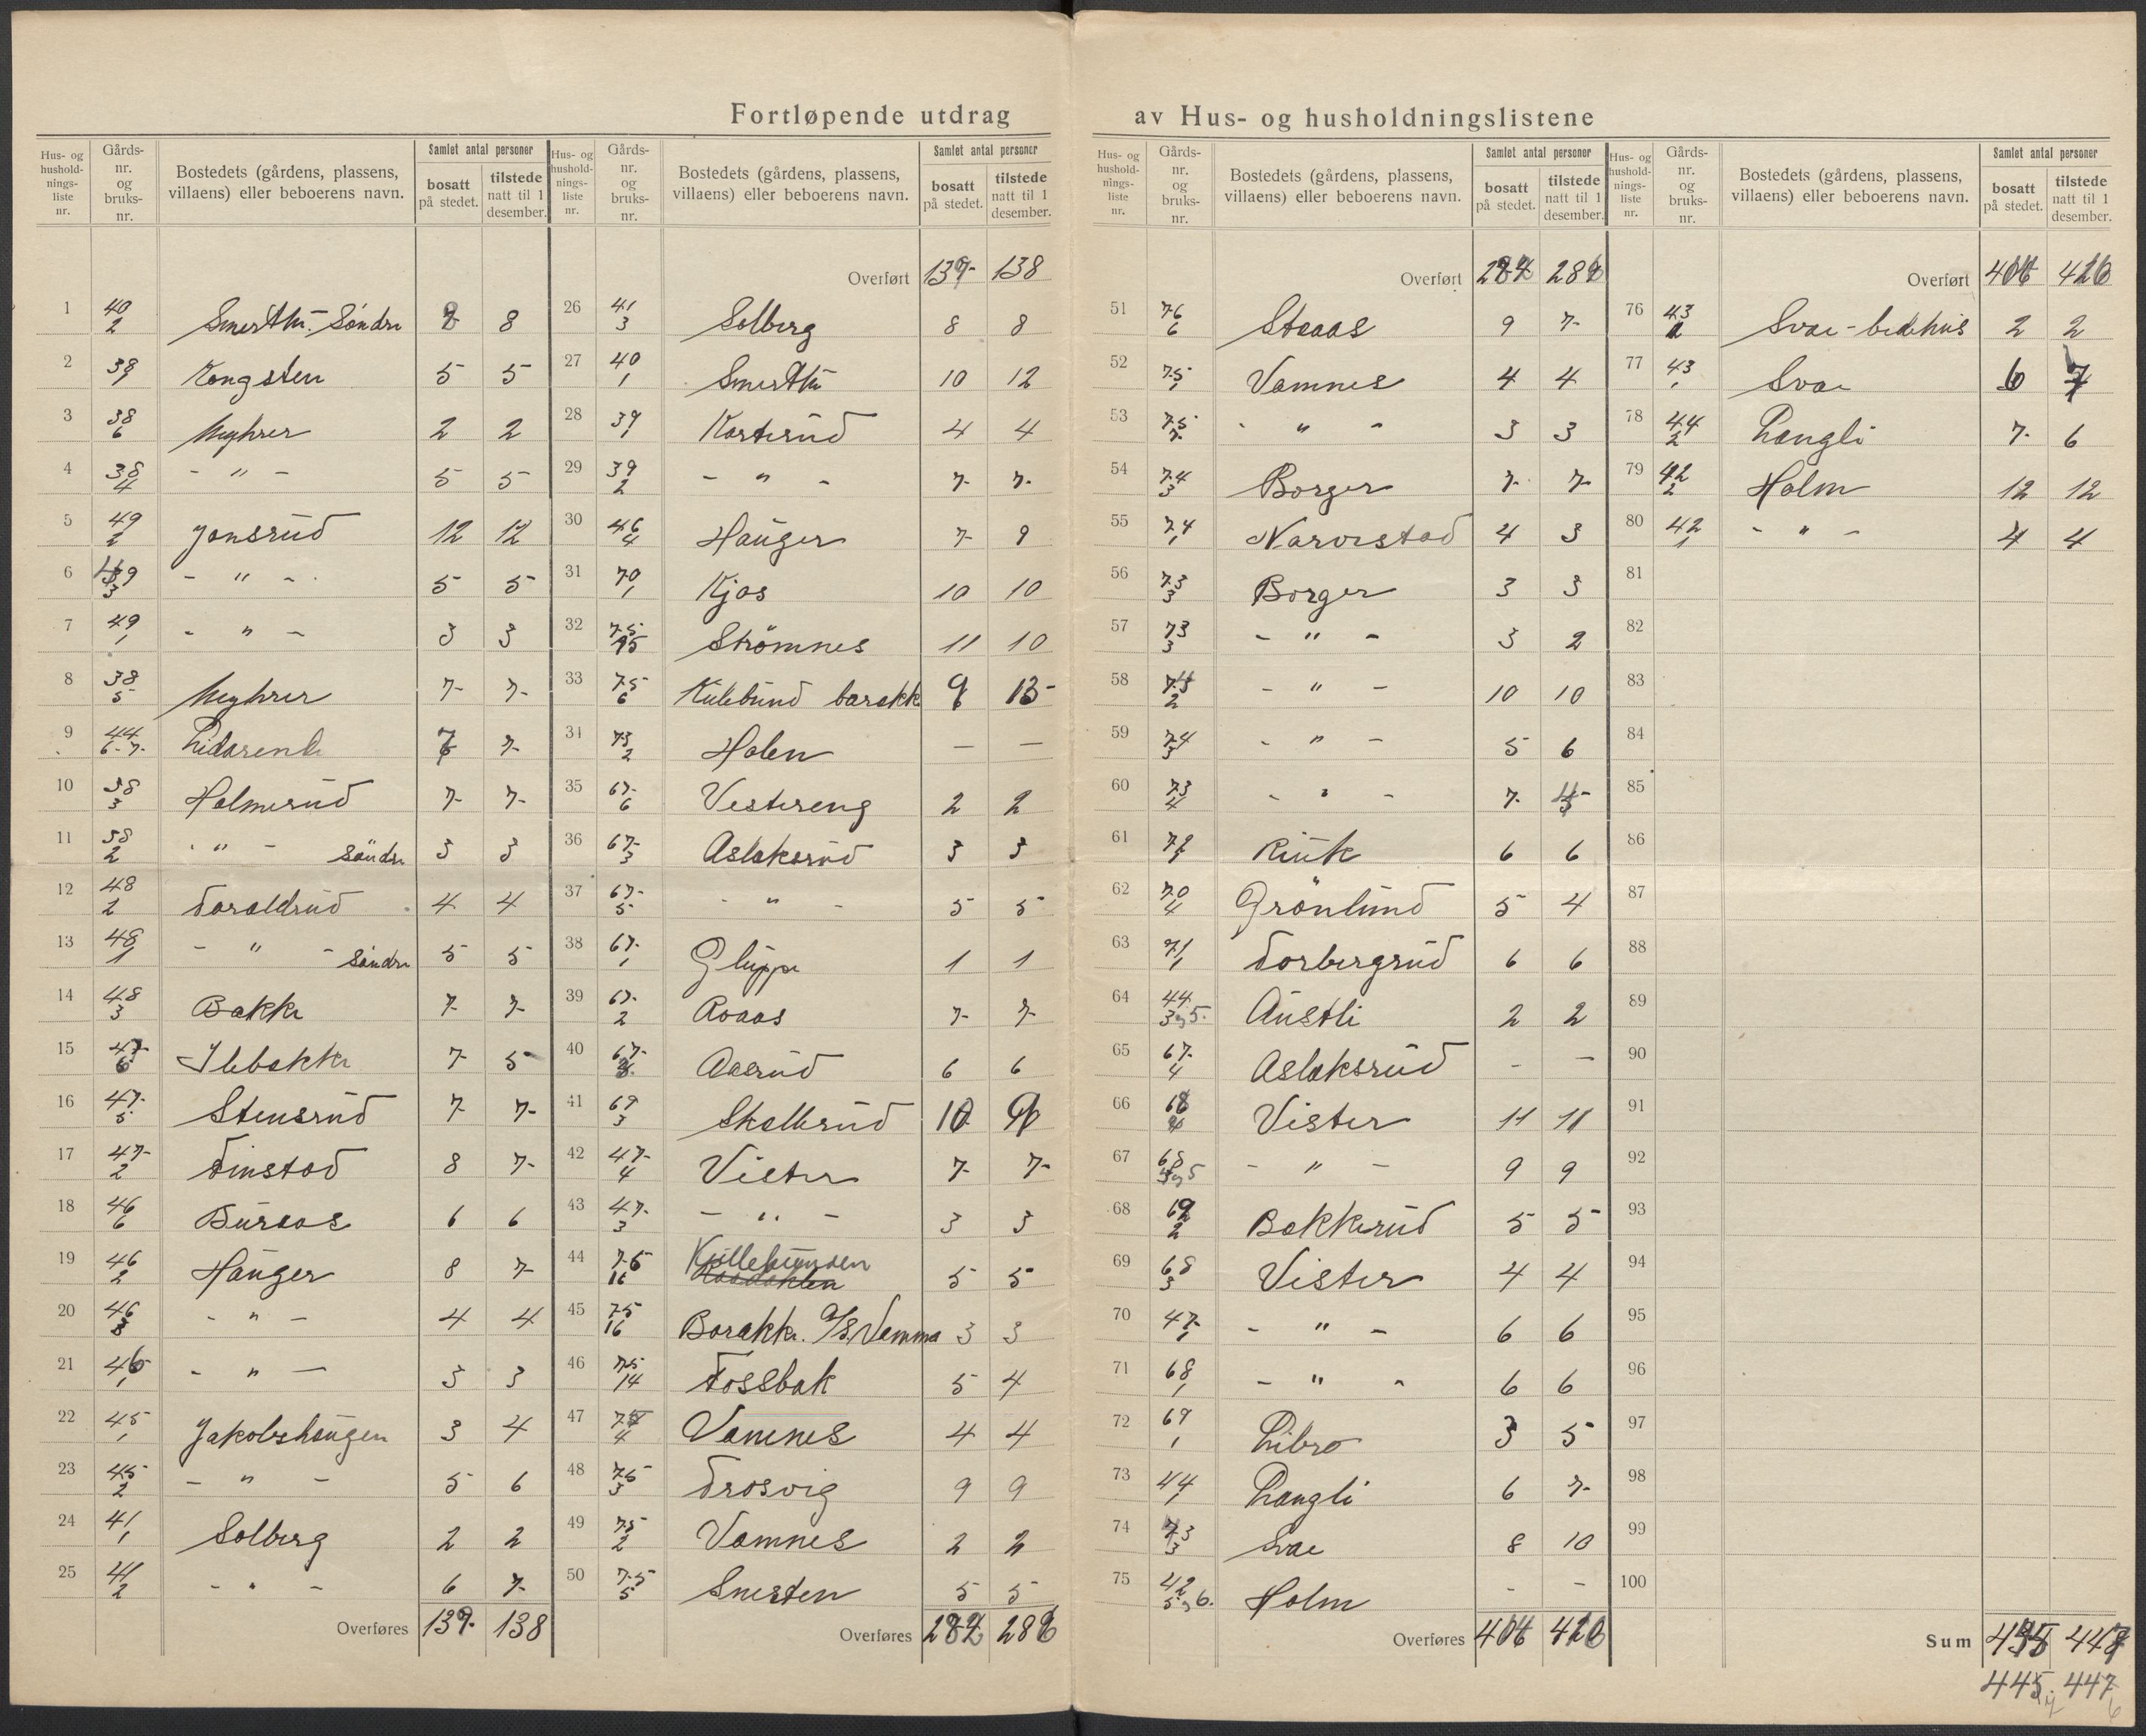 Fortløpende utdrag av Hus- og husholdningslistene
Hus- og hushold- nings- liste nr.
Gårds- nr. og bruks- nr.
Bostedets (gårdens, plassens, villaens) eller beboerens navn.
Samlet antal personer
bosatt på stedet.
tilstede natt til 1 desember.
1 40/2 Smerthu Söndre 8 8
2 39 Kongsten 5 5
3 38/6 Meyhrer 2 2
4 38/4 - " - 5 5
5 49/2 Jonsrud 12 12
6 49/3 - " - 5 5
7 49/1 - " - 3 3
8 38/5 Meyhrer 7 7
9 44/6-7 Lidarende 7
10 38/3 Holmsrud 7 7
11 38/2 - " - Söndre 3 3
12 48/2 Toraldrud 4 4
13 48/1 - " - Söndre 5 5
14 48/3 Bakke 7 7
15 47/6 Ilebakke 7 5
16 47/5 Stensrud 7 7
17 47/2 Finstad 8 7
18 46/6 Buraas 6 6
19 46/2 Haugen 8 7
20 46/3 - " - 4 4
21 46/1 - " - 3 3
22 45/1 Jakobshaugen 3 4
23 45/2 - " - 5 6
24 41/1 Solberg 2 2
25 41/2 - " - 6 7
Overføres 139 138
Hus- og hushold- nings- liste nr.
Gårds- nr. og bruks- nr.
Bostedets (gårdens, plassens, villaens) eller beboerens navn.
Samlet antal personer
bosatt på stedet.
tilstede natt til 1 desember.
Overført 139 138
26 41/3 Solberg 8 8
27 40/1 Smerthu 10 12
28 39/1 Korterud 4 4
29 39/2 - " - 7 7
30 46/4 Hauger 7 9
31 70/1 Kjos 10 10
32 75/15 Strömnes 11 10
33 75/6 Kulebund barakke 9 13
34 73/2 Holen — —
35 67/6 Vestereng 2 2
36 67/3 Aslaksrud 3 3
37 67/5 - " - 5 5
38 67/1 Gluppe 1 1
39 67/2 Roaas 7 7
40 67 Aasrud 6 6
41 69/3 Skallerud 10 9
42 47/4 Vister 7 7
43 47/3 - " - 3 3
44 75/16 Kullebunden 5 5
45 75/16 Barakke A/S. Vamma 3 3
46 75/14 Fossbak 5 4
47 75/4 Vamnes 4 4
48 75/3 Trosvig 9 9
49 75/2 Vamnes 2 2
50 75/5 Snesten 5 5
Overføres 282 286
Hus- og hushold- nings- liste nr.
Gårds- nr. og bruks- nr.
Bostedets (gårdens, plassens, villaens) eller beboerens navn.
Samlet antal personer
bosatt på stedet.
tilstede natt til 1 desember.
Overført 282 286
51 76/6 Staaas 9 7
52 75/1 Vamnes 4 4
53 75/7 - " - 3 3
54 74/3 Borger 7 7
55 74/1 Narvestad 4 3
56 73/3 Borger 3 3
57 73/3 - " - 3 2
58 74/2 - " - 10 10
59 74/3 - " - 5 6
60 73/4 - " - 7
61 72/1 Ruik 6 6
62 70/4 Grönlund 5 4
63 71/1 Torbergrud 6 6
64 44/3 og 5. Austli 2 2
65 67/4 Aslaksrud - —
66 68/4 Vister 11 11
67 68 og 5 - " - 9 9
68 69/2 Bakkerud 5 5
69 68/3 Vister 4 4
70 47/1 - " - 6 6
71 68/1 - " - 6 6
72 69/1 Libro 3 5
73 44/1 Langli 6 7
74 73/3 Svae 8 10
75 42/5 og 6. Holm - -
Overføres 404 420
Hus- og hushold- nings- liste nr.
Gårds- nr. og bruks- nr.
Bostedets (gårdens, plassens, villaens) eller beboerens navn.
Samlet antal personer
bosatt på stedet.
tilstede natt til 1 desember.
Overført 404 420
76 43/2 Svae - bedehus 2 2
77 43/1 Svae 6 7
78 44/2 Langli 7 6
79 42/2 Holm 12 12
80 42/1 - " - 4 4
81
82
83
84
85
86
87
88
89
90
91
92
93
94
95
96
97
98
99
100
Sum 435 447
445 447